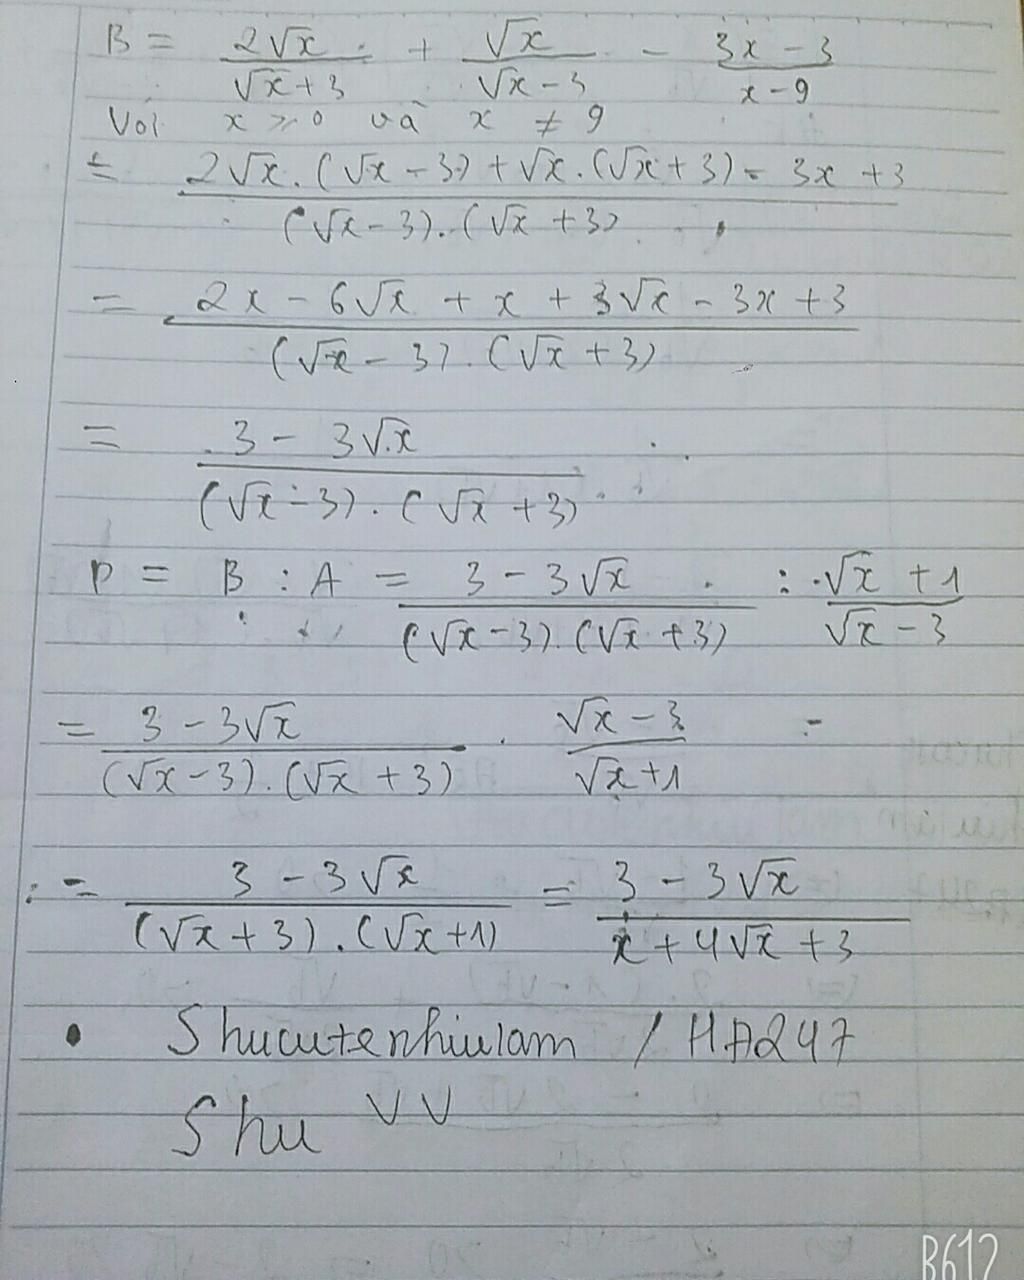 B = 2√x/(√x + 3) + √x/(√x - 3) - (3x - 3)/(x - 9)
Với x ≥ 0 và x ≠ 9
= (2√x . (√x - 3) + √x . (√x + 3) - 3x + 3)/((√x - 3) . (√x + 3))
= (2x - 6√x + x + 3√x - 3x + 3)/((√x - 3) . (√x + 3))
= (3 - 3√x)/((√x - 3) . (√x + 3))
P = B : A = (3 - 3√x)/((√x - 3) . (√x + 3)) : (√x + 1)/(√x - 3)
= (3 - 3√x)/((√x - 3) . (√x + 3)) . (√x - 3)/(√x + 1) =
= (3 - 3√x)/((√x + 3) . (√x + 1)) = (3 - 3√x)/(x + 4√x + 3)
• Shucutenhiulam / HA247
Shu VV
B612